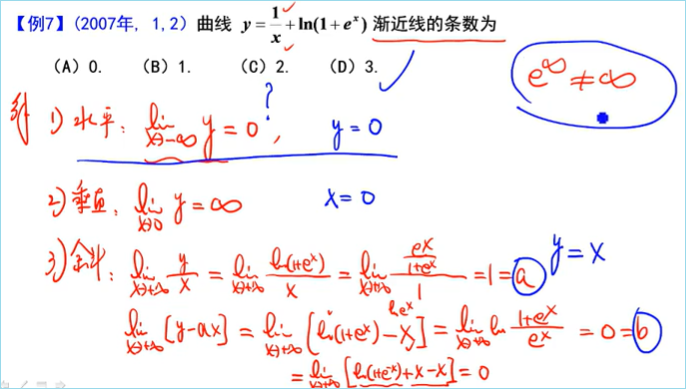 【例7】(2007年, 1,2) 曲线 y = 1/x + ln(1+eˣ) 渐近线的条数为
(A) 0. (B) 1. (C) 2. (D) 3.
?
e^∞ ≠ ∞
解 1) 水平: lim_{x→-∞} y = 0, y = 0
2) 垂直: lim_{x→0} y = ∞ x = 0
3) 斜: lim_{x→+∞} y/x = lim_{x→+∞} ln(1+eˣ)/x = lim_{x→+∞} (eˣ/(1+eˣ))/1 = 1 = a y = x
ln eˣ
lim_{x→+∞} [y-ax] = lim_{x→+∞} [ln(1+eˣ) - x] = lim_{x→+∞} ln (1+eˣ)/eˣ = 0 = b
= lim_{x→+∞} [ln(1+e⁻ˣ)+x-x] = 0